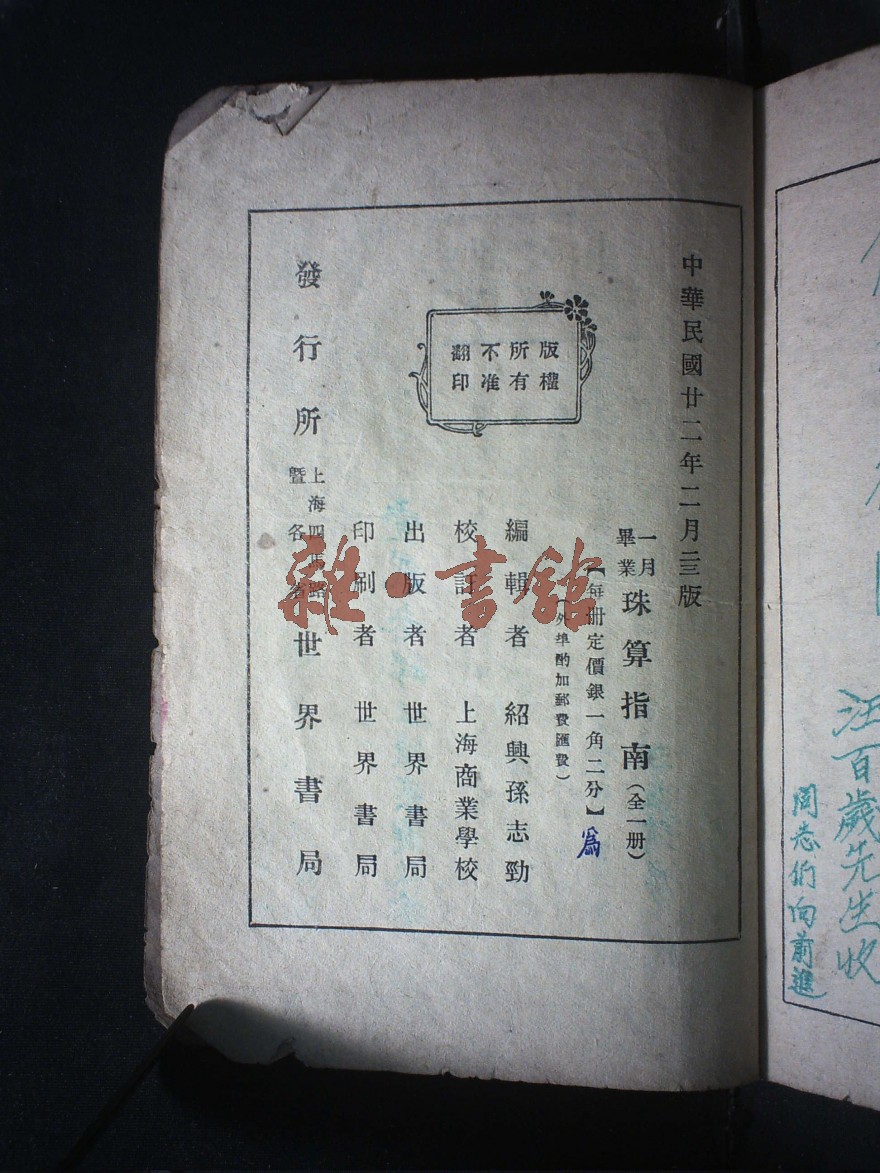 中華民國廿二年二月二三版
一月畢業 珠算指南(全一册)
【每册定價銀一角二分】
(外埠酌加郵費匯費)
為
版權
所有
不准
翻印
編輯者 紹興孫志勁
校訂者 上海商業學校
出版者 世界書局
印刷者 世界書局
發行所 上海四馬路暨各省 世界書局
雜·書館
汪百歲先生收
同志们向前進